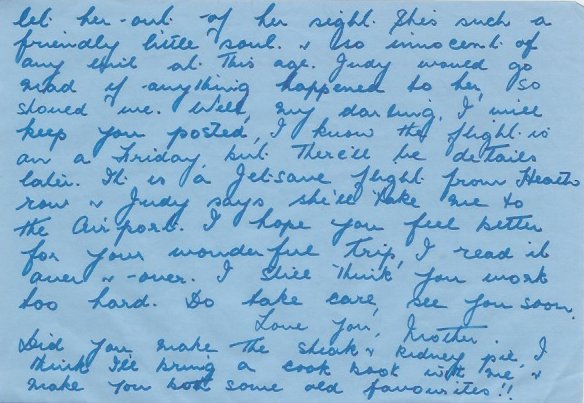 let her out of her sight. She's such a
friendly little soul. & so innocent of
any evil at this age. Judy would go
mad if anything happened to her, so
should we. Well, my darling, I will
keep you posted, I know the flight is
on a Friday, but there'll be details
later. It is a Jet-save flight from Heath
row & Judy says she'll take me to
the Airport. I hope you feel better
for your wonderful trip, I read it
over & over. I still think you work
too hard. Do take care, see you soon.
Love you, Mother.
Did you make the steak & kidney pie, I
think I'll bring a cook book with me, &
make you both some old favourites!!